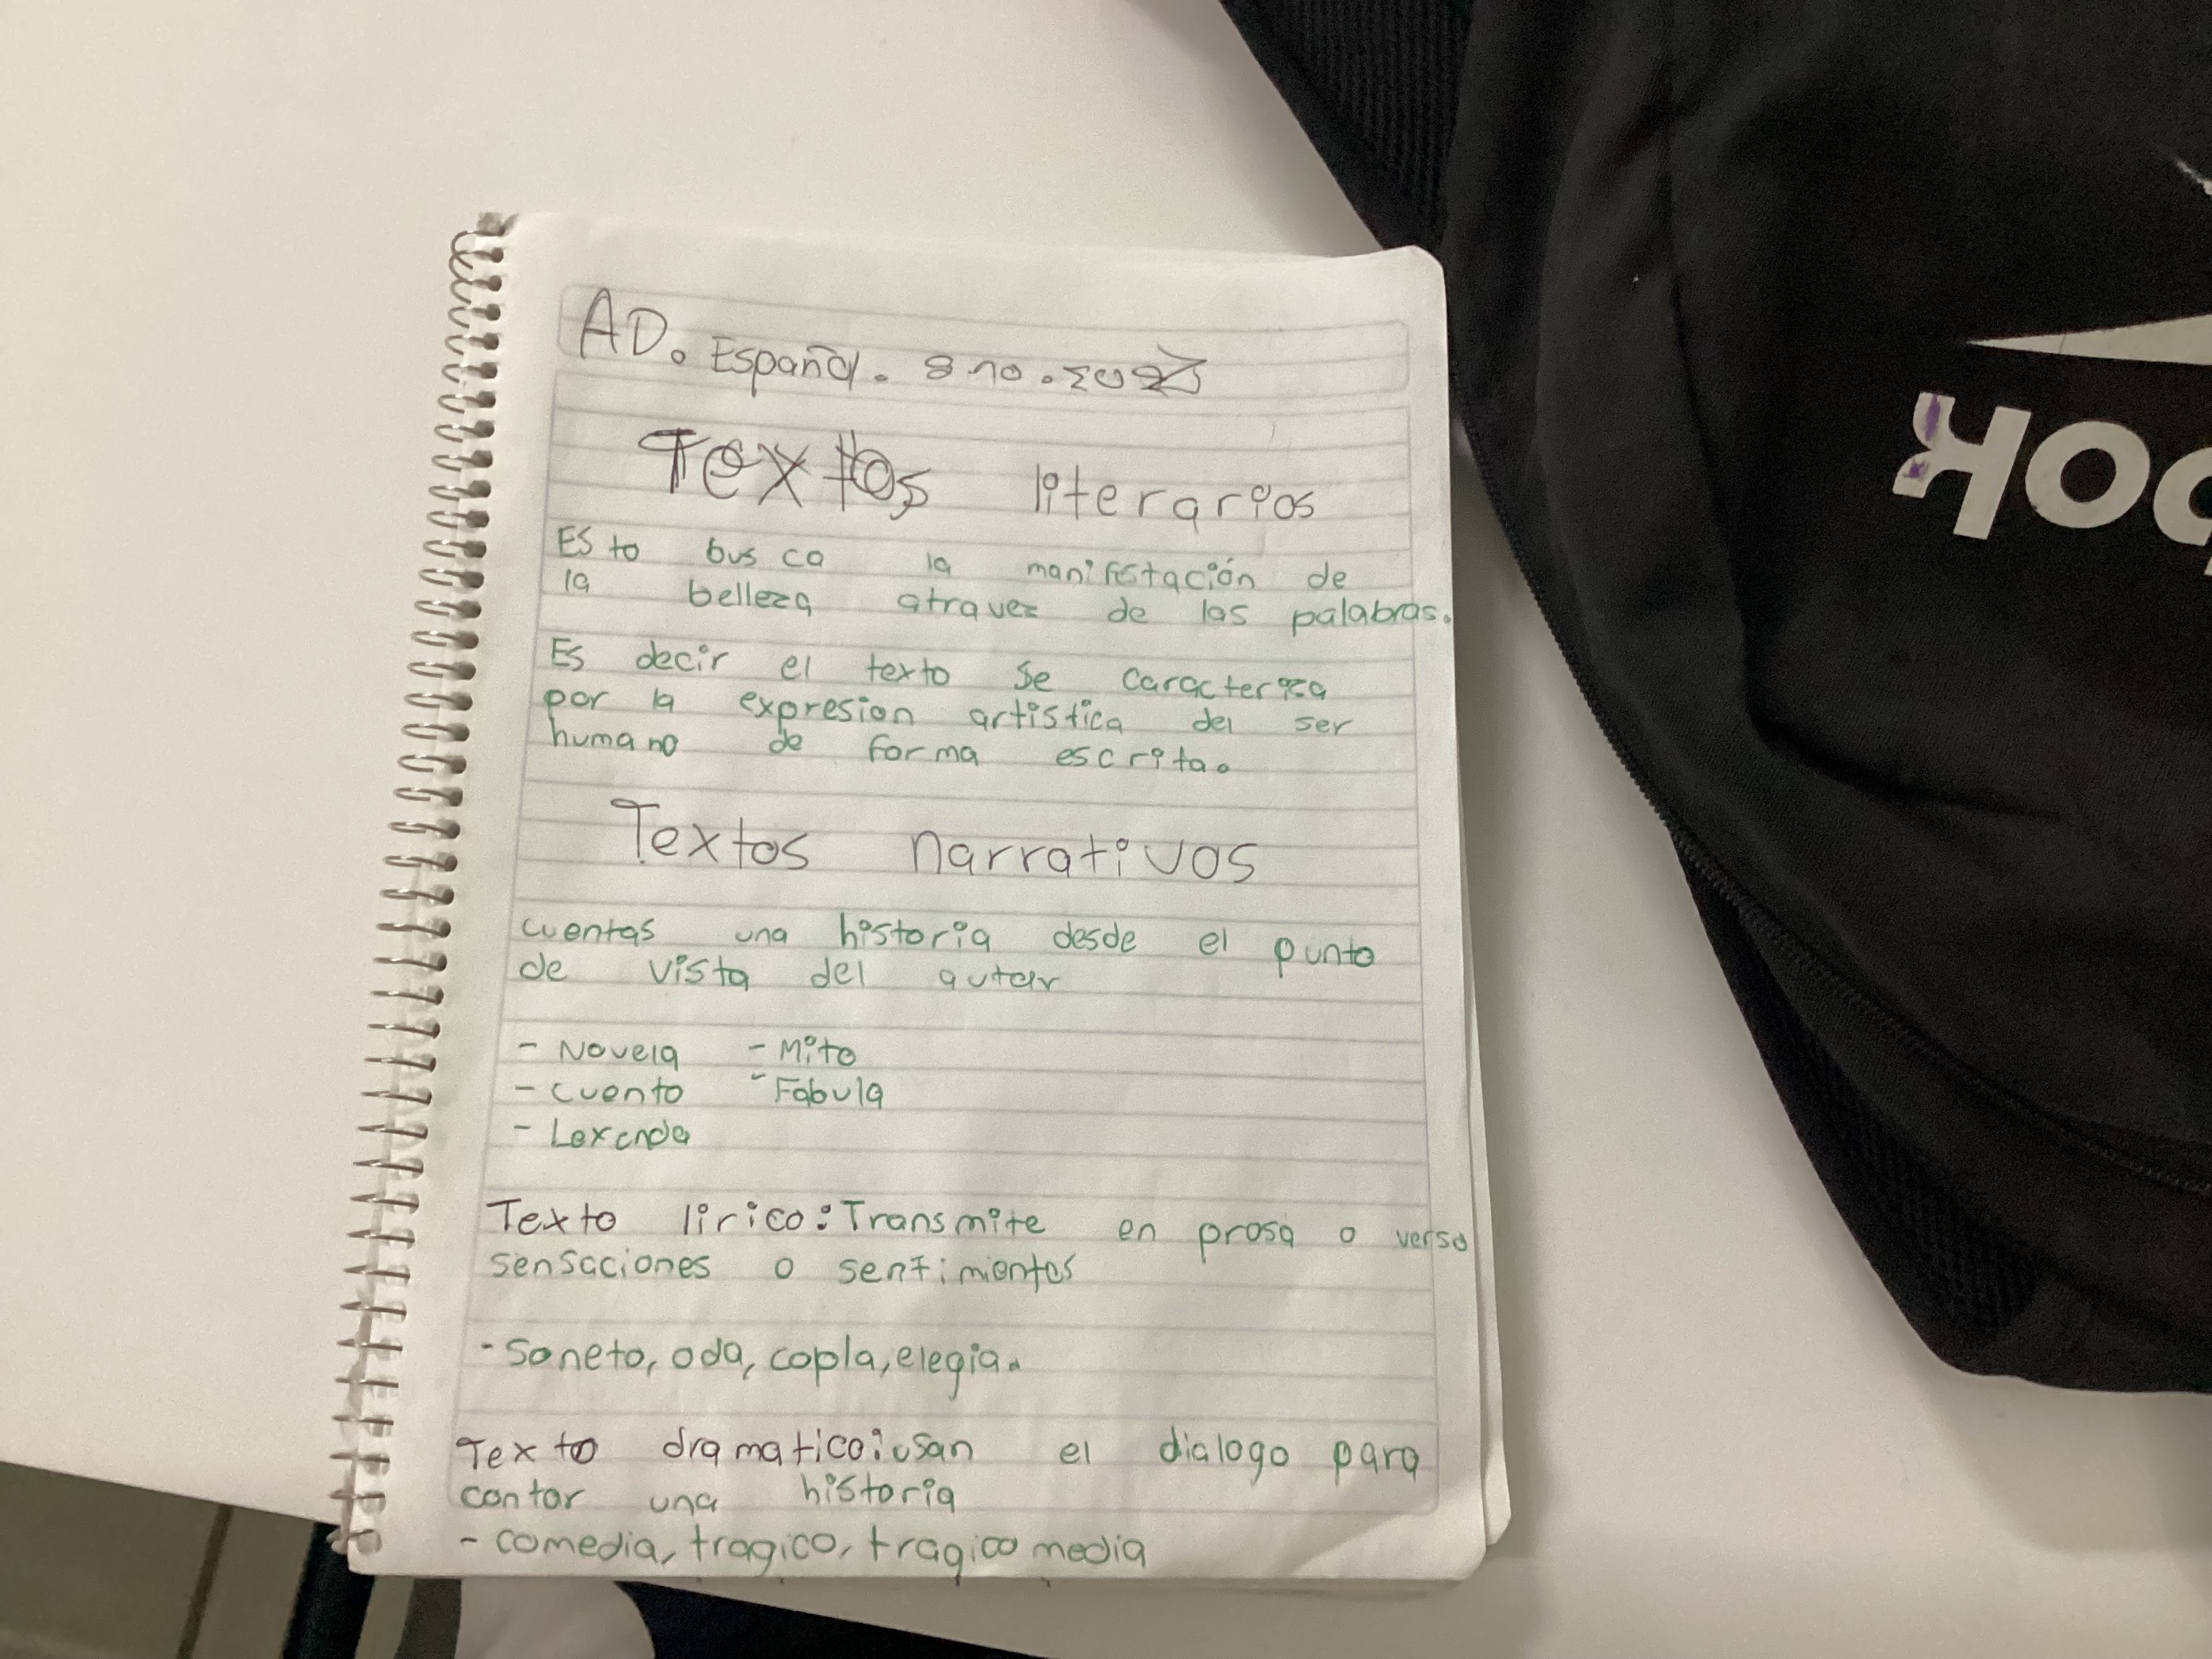 AD. Español. 8 no.
Textos literarios
Esto busca la manifestación de
la belleza atravez de las palabras.
Es decir el texto se caracteriza
por la expresion artistica del ser
humano de forma escrita.
Textos narrativos
cuentas una historia desde el punto
de vista del autor
- Novela - Mito
- cuento - Fabula
- Lexenda
Texto lirico: Transmite en prosa o verso
sensaciones o sentimientos
- Soneto, oda, copla, elegia.
Texto dramatico: usan el dialogo para
contar una historia
- comedia, tragico, tragico media
ok